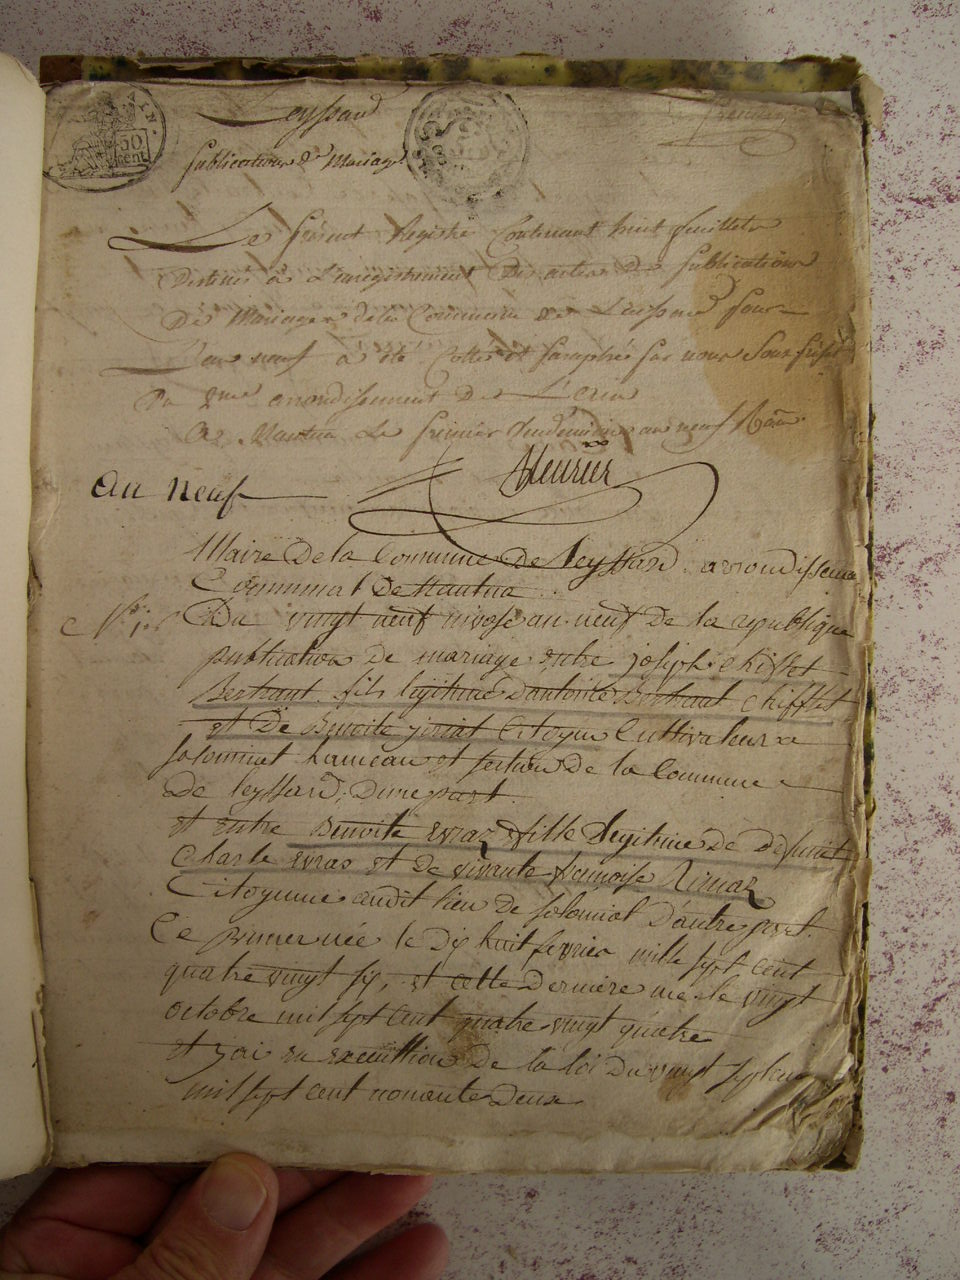 Leyssard
publications de Mariages
AIN.
50
cent
Le présent Registre Contenant huit feuillets
Destinés à L'enregistrement Des actes de publications
De Mariages de la Commune de Leissard pour
L'an neuf a été Cotté et paraphé par nous Sous préfet
Du 2me arrondissement De L'ain
a Nantua Le premier Vendemiaire an neuf
an neuf
Maire De la Commune de Leyssard arrondisseme
Communal De Nantua
Du vingt neuf nivose an neuf De la republique
publication De mariage entre joseph chifflet
Bertraut fils legitime D'antoine Bertraut chifflet
et De Benoite joriat Citoyen Cultivateur a
solomiat hameau et section De la Commune
De leyssard, D'une part
et entre Benoite evraz fille legitime De Defunt
Charle evras et De vivante francoise
Citoyenne audit lieu De solomiat D'autre part.
Ce premier née le Dix huit fevrier mille sept cent
quatre vingt six, et cette Derniere née le vingt
octobre mil sept cent quatre vingt quatre
et j'ai en execution De la loi Du vingt septem
mil sept cent nonante Deux